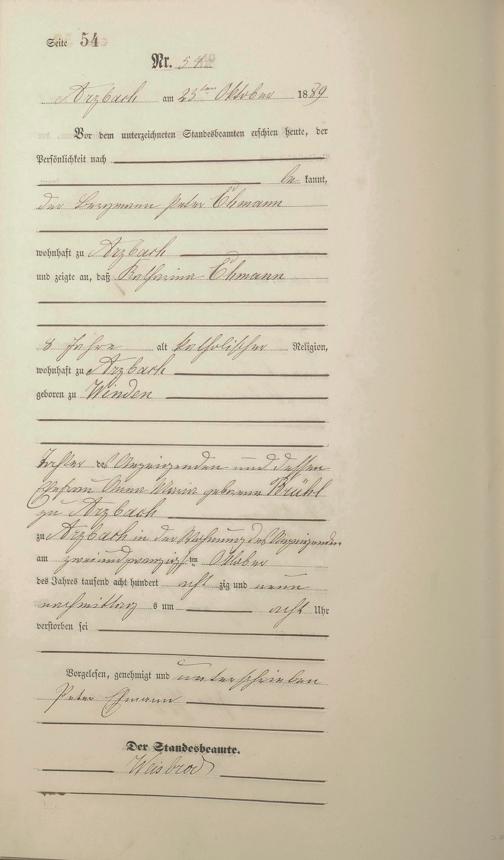 Seite 54
Nr. 54
Arzbach am 23ten Oktober 1889
Vor dem unterzeichneten Standesbeamten erschien heute, der
Persönlichkeit nach
be kannt,
der Bergmann Peter Ehmann
wohnhaft zu Arzbach
und zeigte an, daß Katharina Ehmann
8 Jahre alt katholischer Religion,
wohnhaft zu Arzbach
geboren zu Winden
Tochter des Anzeigenden und dessen
Ehefrau Anna Maria geborene Brühl
zu Arzbach
zu Arzbach in der Wohnung des Anzeigenden
am zweiundzwanzigsten Oktober
des Jahres tausend acht hundert acht zig und neun
nachmittag s um acht Uhr
verstorben sei
Vorgelesen, genehmigt und unterschrieben
Peter Ehmann
Der Standesbeamte.
Weisbrod